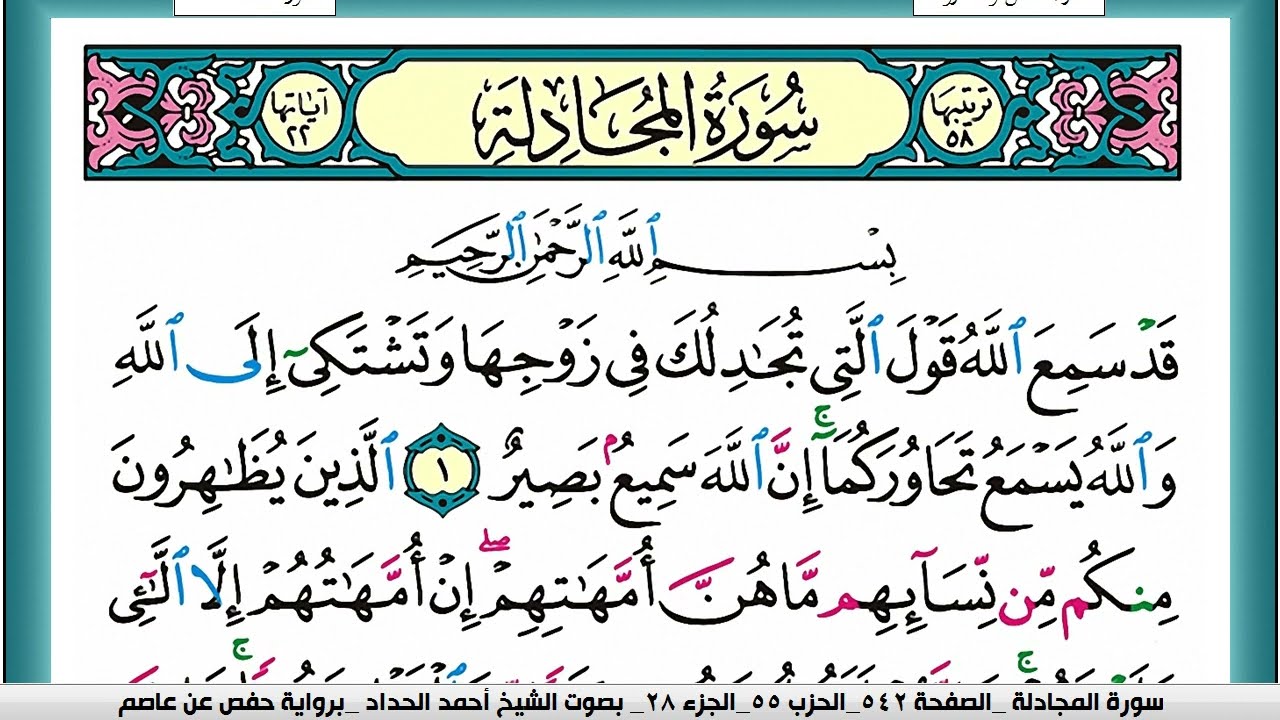 ترتيبها ٥٨
سُورَةُ المُجَادِلَةِ
آياتها ٢٢
بِسْمِ ٱللَّهِ ٱلرَّحْمَٰنِ ٱلرَّحِيمِ
قَدْ سَمِعَ ٱللَّهُ قَوْلَ ٱلَّتِي تُجَٰدِلُكَ فِي زَوْجِهَا وَتَشْتَكِىٓ إِلَى ٱللَّهِ
وَٱللَّهُ يَسْمَعُ تَحَاوُرَكُمَآ ۚ إِنَّ ٱللَّهَ سَمِيعٌۢ بَصِيرٌ ١ ٱلَّذِينَ يُظَٰهِرُونَ
مِنكُم مِّن نِّسَآئِهِم مَّا هُنَّ أُمَّهَٰتِهِمْ ۖ إِنْ أُمَّهَٰتُهُمْ إِلَّا ٱلَّٰٓـِٔى
سورة المجادلة _الصفحة ٥٤٢_الحزب ٥٥_الجزء ٢٨_ بصوت الشيخ أحمد الحداد _برواية حفص عن عاصم